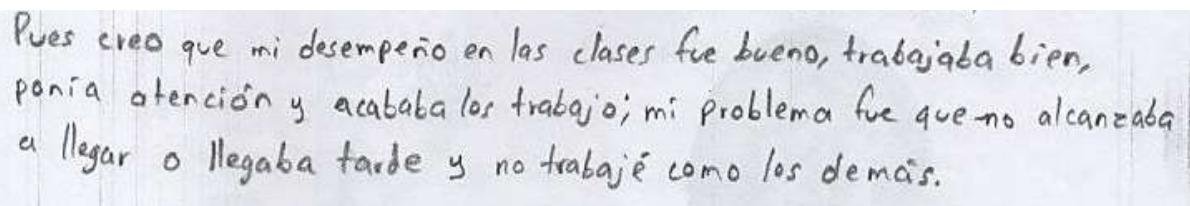 Pues creo que mi desempeño en las clases fue bueno, trabajaba bien,
ponía atención y acababa los trabajo; mi problema fue que no alcanzaba
a llegar o llegaba tarde y no trabajé como los demás.